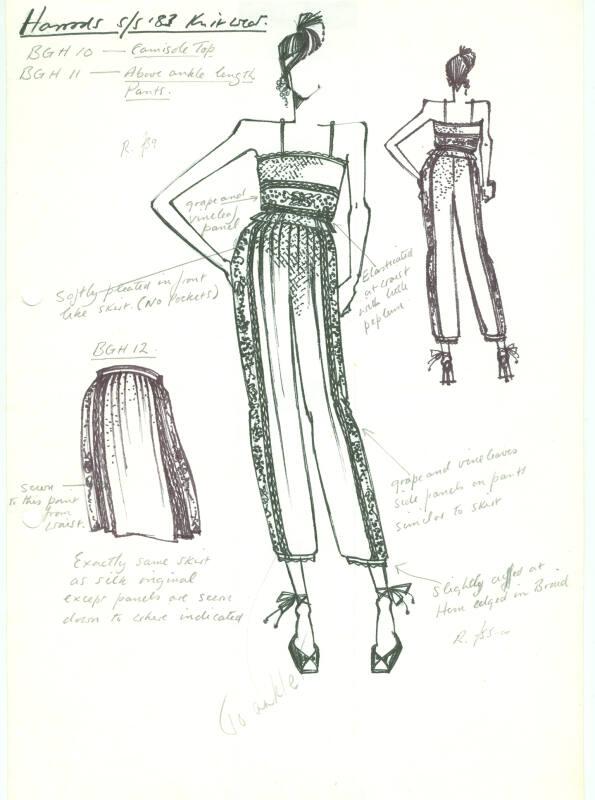 Harrods S/S '83 Knitwear.
BGH 10 — Camisole Top
BGH 11 — Above ankle length
Pants.
grape and
vineleaf
panel
Softly pleated in front
like skirt. (No pockets)
Elasticated
at waist
with little
peplum.
BGH 12.
sewn
to this point
from
waist.
grape and vine leaves
side panels on pants
similar to skirt
Exactly same skirt
as silk original
except panels are sewn
down to where indicated
Slightly cuffed at
Hem edged in Braid
To ankle